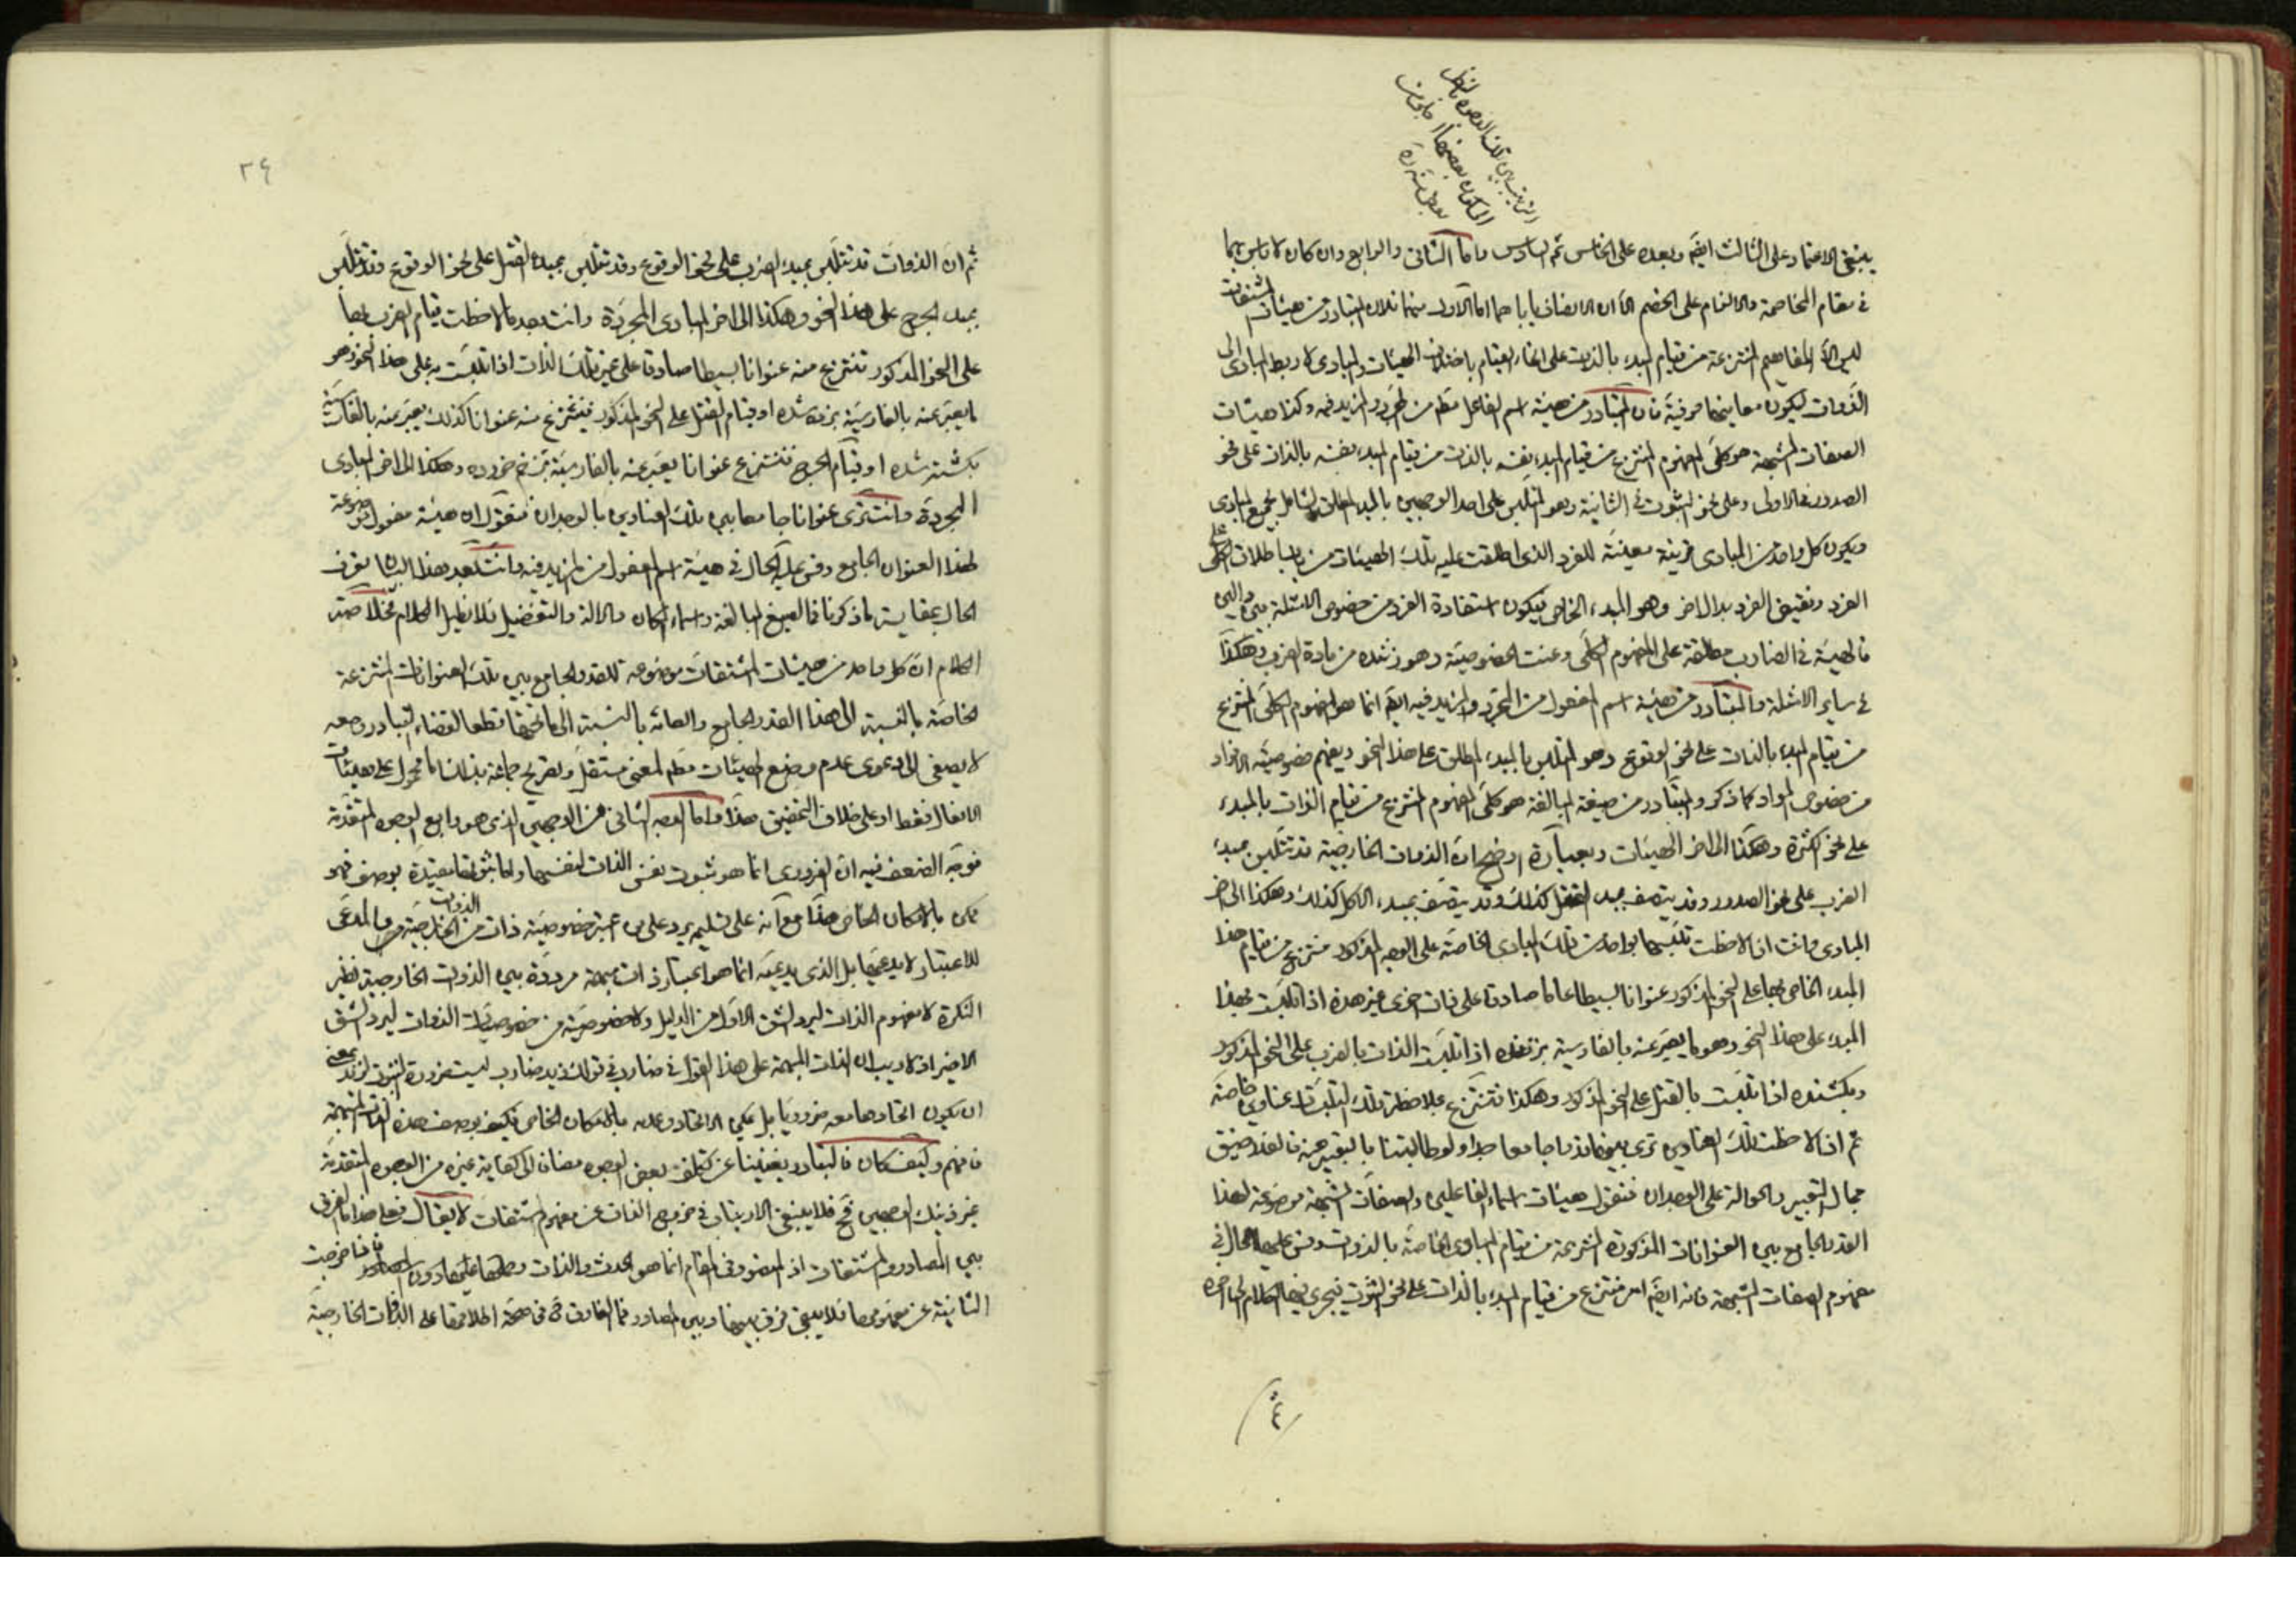 ينبغى الاعتماد على الثالث ايضً وبعده على الخامس ثم السادس واما الثانى والرابع وان كان لا باس بهما
فى مقام المخاصمة والالتزام على الخصم الا ان الانصاف اما الاول فلان المتبادر من هيئات المشتقات
ليس الا المفاهيم المنتزعة من قيام المبدء بالذات على انحاء القيام باختلاف الهيئات والمبادى لا ربط المبادى الى
الذوات ليكون معانيها حرفية فان المتبادر من هيئة اسم الفاعل مطم من المجرد والمزيد فيه وكذا هيئات
الصفات المشبهة هو كلى المفهوم المنتزع من قيام المبدء بنفسه بالذات على نحو
الصدور فى الاولى وعلى نحو الثبوت فى الثانية وهو المتلبس على احد الوجهين بالمبدء المطلق الشامل لجميع المبادى
ويكون كل واحد من المبادى قرينة معينة للفرد الذى اطلقت عليه تلك الهيئات من باب اطلاق الكلى على
الفرد وتفهيم الفرد بدال اخر وهو المبدء الخاص فيكون استفادة الفرد من خصوص الامثلة بدالين
فالهيئة فى الضارب مطلقة على المفهوم الكلى وعنت الخصوصية وهو زننده من مادة الضرب وهكذا
فى ساير الامثلة والمتبادر من هيئة اسم المفعول من المجرد والمزيد فيه ايضً انما هو المفهوم الكلى المنتزع
من قيام المبدء بالذات على نحو الوقوع وهو المتلبس بالمبدء المطلق على هذا النحو ويفهم خصوصية الافراد
من خصوص المواد كما ذكر والمتبادر من صيغة المبالغة هو كلى المفهوم المنتزع من قيام الذات بالمبدء
على نحو الكثرة وهكذا الى اخر الهيئات وبعبارة اوضح ان الذوات الخارجية قد تتلبس بمبدء
الضرب على نحو الصدور وقد يتصف بمبدء القتل كذلك وقد يتصف بمبدء الاكل كذلك وهكذا الى اخر
المبادى وانت اذا لاحظت تلبسها بواحد من تلك المبادى الخاصة على الوجه المذكور تنتزع من قيام هذا
المبدء الخاص بها على النحو المذكور عنوانا بسيطا عاما صادقا على ذات اخرى غير هذه اذا تلبست بهذا
المبدء على هذا النحو وهو ما يعبر عنه بالفارسية بزننده اذا تلبست الذات بالضرب على النحو المذكور
وبكشنده اذا تلبست بالقتل على النحو المذكور وهكذا تنتزع بملاحظة تلك التلبسات عناوين خاصة
ثم اذا لاحظت تلك العناوين ترى بينها قدرا جامعا ولو طالبتنا بالتعبير عنه فلضيق
مجال التعبير والحوالة على الوجدان فنقول هيئات اسماء الفاعلين والصفات المشبهة موضوعة لهذا
القدر الجامع بين العنوانات المذكورة المنتزعة من قيام المبادى الخاصة بالذوات وقس عليها الحال فى
مفهوم الصفات المشبهة فانه ايضً امر منتزع من قيام المبدء بالذات على نحو الثبوت فيجرى فيها الكلام الى اخره
٣٤
ثم ان الذوات قد تتلبس بمبدء الضرب على نحو الوقوع وقد تتلبس بمبدء القتل على نحو الوقوع وقد تتلبس
بمبدء الجرح على هذا النحو وهكذا الى اخر المبادى المجردة وانت بعد ما لاحظت قيام الضرب بها
على النحو المذكور تنتزع منه عنوانا بسيطا صادقا على غير تلك الذات اذا تلبست به على هذا النحو وهو
ما يعبر عنه بالفارسية بزده شده او قيام القتل على النحو المذكور فينتزع منه عنوانا كذلك يعبر عنه بالفارسية
بكشته شده او قيام الجرح فتنتزع عنوانا يعبر عنه بالفارسية بزخم خورده وهكذا الى اخر المبادى
المجردة وانت ترى عنوانا جامعا بين تلك العناوين بالوجدان فنقول ان هيئة مفعول موضوعة
لهذا العنوان الجامع وقس عليه الحال فى هيئة اسم المفعول من المزيد فيه وانت بعد هذا البيان تعرف
الحال بمقايسة ما ذكرنا فى صيغ المبالغة واسماء المكان والالة والتفضيل فلا نطيل الكلام
الكلام ان كل واحد من هيئات المشتقات موضوعة للقدر الجامع بين تلك العنوانات المنتزعة
الخاصة بالنسبة الى هذا القدر الجامع والعامة بالنسبة الى ما تحتها قطعا لقضاء التبادر ومعه
لا يصغى الى دعوى عدم وضع الهيئات مطم لمعنى مستقل وتصريح جماعة بذلك اما محمول على هيئات
الافعال فقط او على خلاف التحقيق هذا واما الوجه الثانى من الوجهين الذى هو رابع الوجوه المتقدمة
فوجه الضعف فيه ان الضرورى انما هو ثبوت نفس الذات لنفسها واما ثبوتها مقيدة بوصف فهو
ممكن بالامكان الخاص هذا مع انه على تسليمه يرد على من اعتبر خصوصية ذات من الذوات الخارجية والمدعى
للاعتبار لا يدعيها بل الذى يدعيه انما هو اعتبار ذات مبهمة مرددة بين الذوات الخارجية نظير
النكرة لا مفهوم الذات ليرد الشق الاول من الدليل ولا خصوصية من خصوصيات الذوات ليرد الشق
الاخير اذ لا ريب ان الذات المبهمة على هذا القول فى ضارب فى قولك زيد ضارب ليست ضرورة الثبوت لزيد بمعنى
ان يكون اتحادها معه ضروريا بل يمكن الاتحاد وعدمه بالامكان الخاص فكيف بوصف هذه الذات المبهمة
فافهم وكيف كان فالتبادر يغنينا عن تكلف بعض الوجوه مضافا الى كفاية غيره من الوجوه المتقدمة
غير ذينك الوجهين فح فلا ينبغى الارتياب فى خروج الذات عن مفهوم المشتقات لا يقال فعلى هذا ما الفرق
بين المصادر والمشتقات اذ المتصور فى المقام انما هو الحدث والذات فاذا خرجت
الثانية عن مفهومها فلا يبقى فرق بينها وبين المصادر فما الفارق فى صحة اطلاقها على الذوات الخارجية